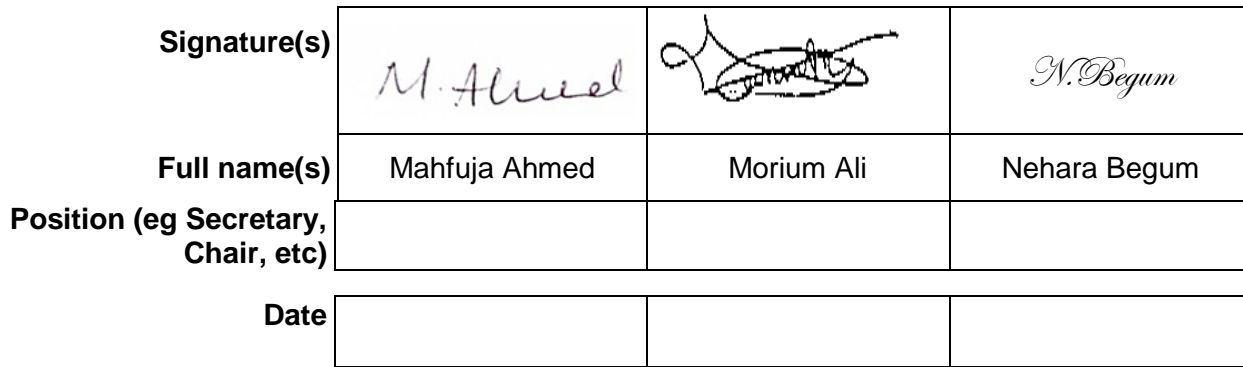 Signature(s)
M. Ahmed
N. Begum
Full name(s) Mahfuja Ahmed Morium Ali Nehara Begum
Position (eg Secretary,
Chair, etc)
Date